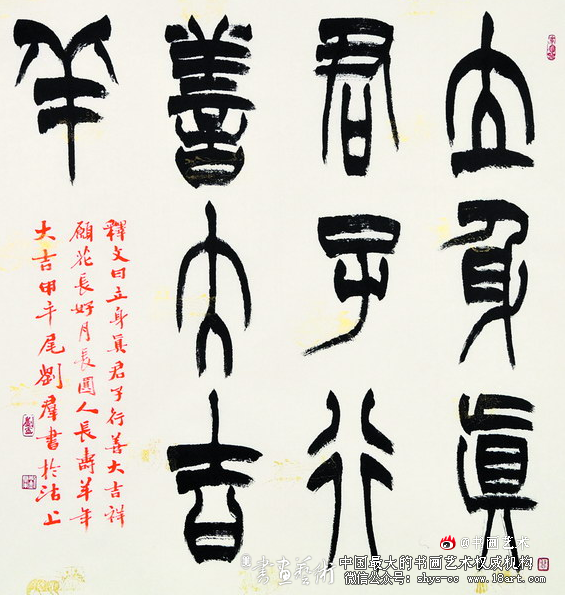 立身眞
君子行
善大吉
羊
釋文曰立身真君子行善大吉祥
願花長好月長圓人長壽羊年
大吉甲午尾劉群書於沽上
@书画艺术
書画藝術
中国最大的书画艺术权威机构
微信公众号：shys-cc www.18art.com